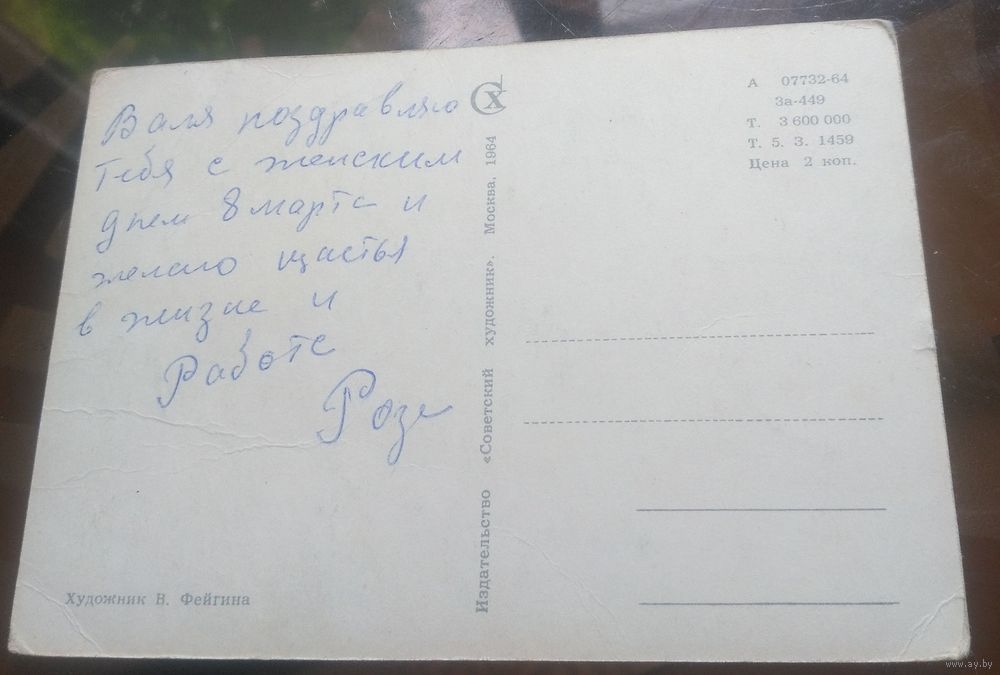 Валя поздравляю
тебя с женским
днем 8 марта и
желаю щастья
в жизне и
Работе
Роза
Художник В. Фейгина
Издательство «Советский художник». Москва. 1964
СХ
А 07732-64
За-449
Т. 3 600 000
Т. 5. З. 1459
Цена 2 коп.
www.ay.by